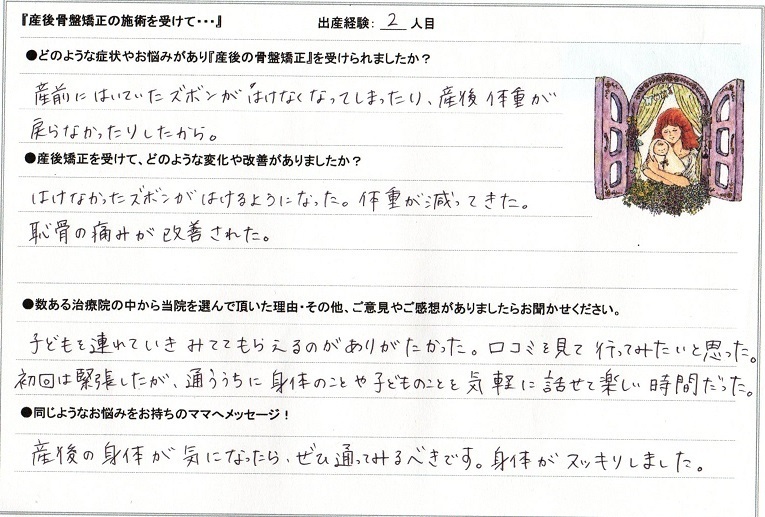 『産後骨盤矯正の施術を受けて・・・』 出産経験: 2 人目
●どのような症状やお悩みがあり『産後の骨盤矯正』を受けられましたか？
産前にはいていたズボンがはけなくなってしまったり、産後体重が
戻らなかったりしたから。
●産後矯正を受けて、どのような変化や改善がありましたか？
はけなかったズボンがはけるようになった。体重が減ってきた。
恥骨の痛みが改善された。
●数ある治療院の中から当院を選んで頂いた理由・その他、ご意見やご感想がありましたらお聞かせください。
子どもを連れていきみててもらえるのがありがたかった。口コミを見て行ってみたいと思った。
初回は緊張したが、通ううちに身体のことや子どものことを気軽に話せて楽しい時間だった。
●同じようなお悩みをお持ちのママへメッセージ！
産後の身体が気になったら、ぜひ通ってみるべきです。身体がスッキリしました。